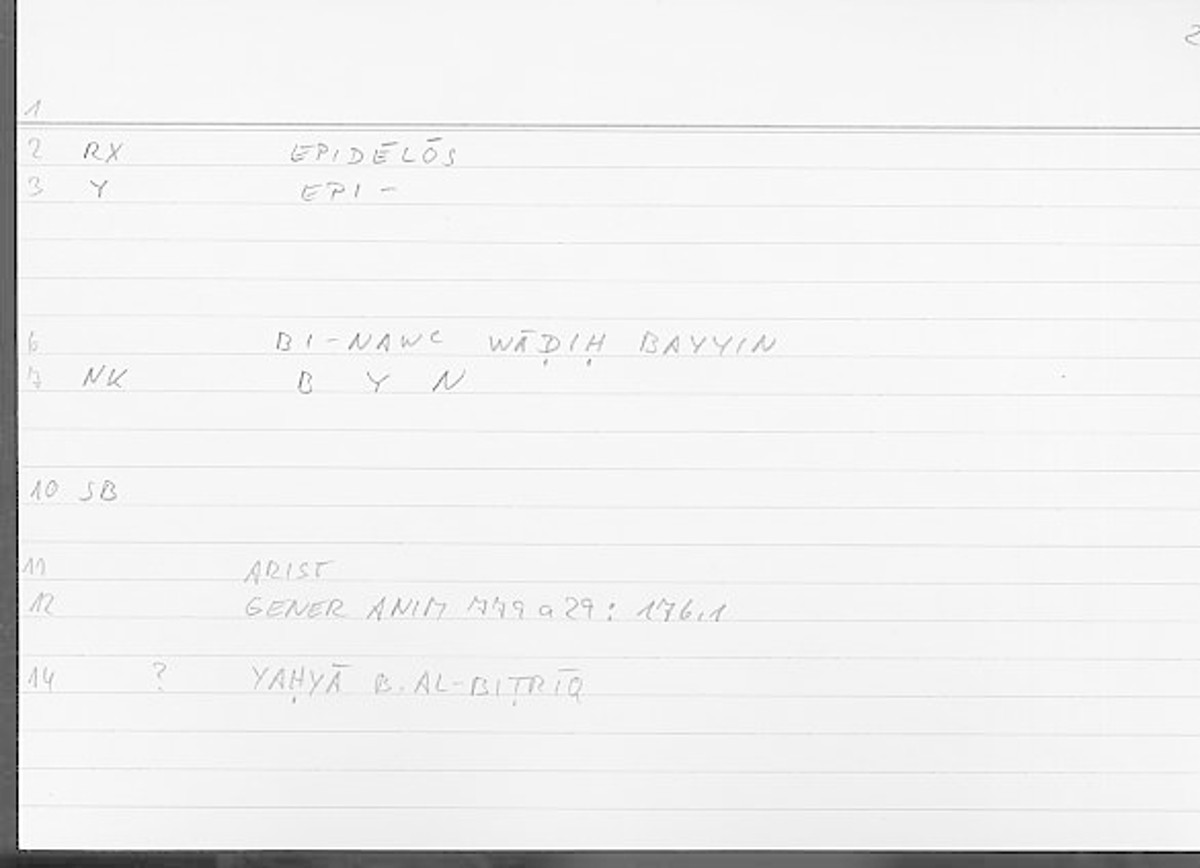 2
1
2 RX EPIDĒLŌS
3 Y EPI-
6 BI-NAWC WĀḌIḤ BAYYIN
7 NK B Y N
10 SB
11 ARIST
12 GENER ANIM 779a29: 176,1
14 ? YAḤYĀ B. AL-BIṬRĪQ